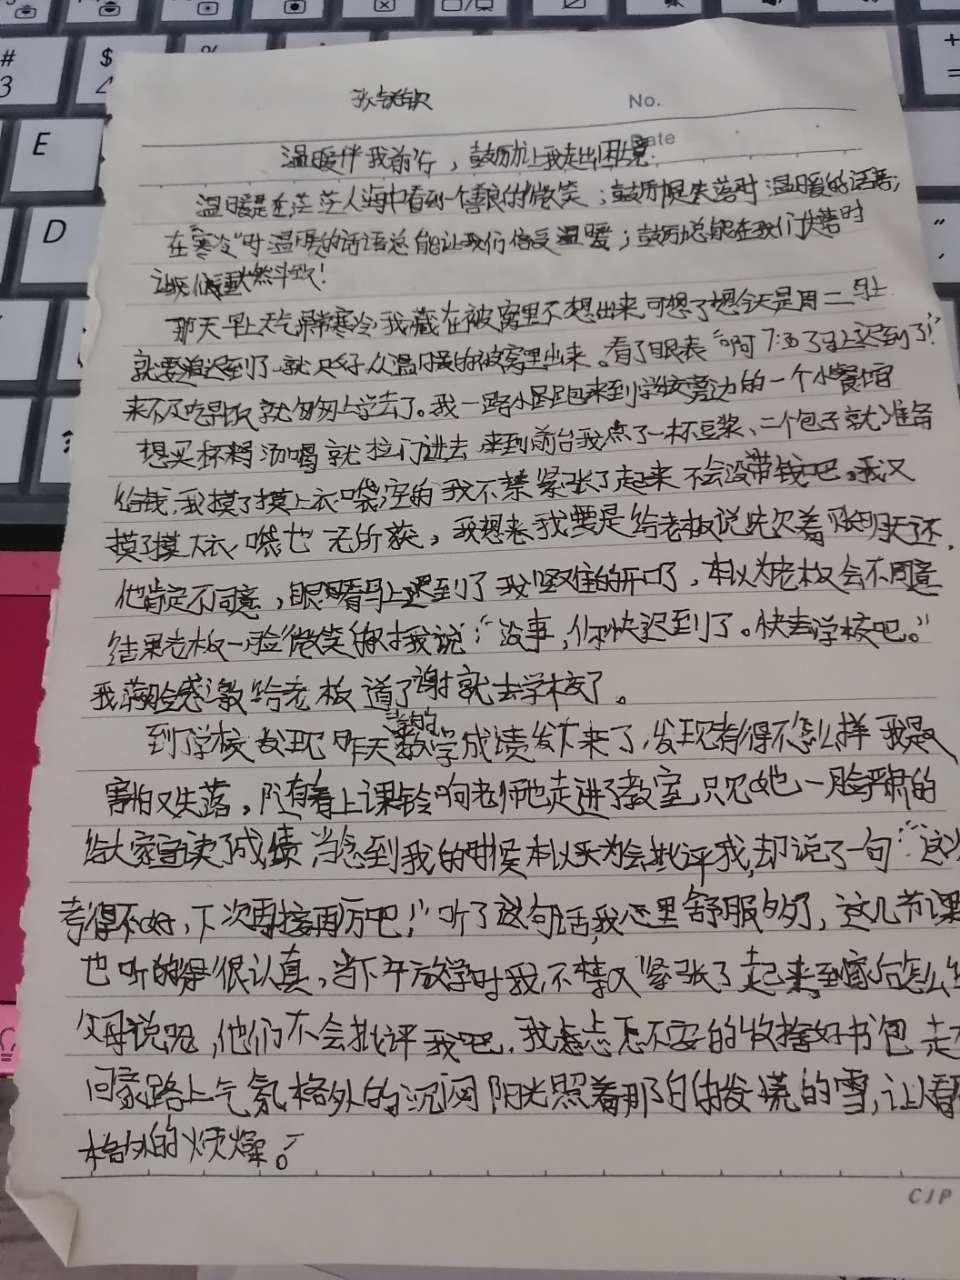 # $ %
3 4
E
D
+
=
No.
Date
温暖伴我前行，鼓励让我走出困境
温暖是在茫茫人海中看到一个善良的微笑；鼓励是失落时温暖的话语；
在"寒冷"时温暖的话语总能让我们倍受温暖；鼓励总能在我们失落时
让我们重燃斗致！
那天早上天气异常寒冷，我藏在被窝里不想出来，可想了想今天是周二马上
就要迟到了，就只好从温暖的被窝里出来。看了眼表"啊7:30了马上迟到了！"
来不及吃早饭就匆匆上学去了。我一路小跑来到学校旁边的一个小餐馆
想买杯粥汤喝就拉门进去，来到前台我点了一杯豆浆、二个包子就准备
给钱，我摸了摸上衣袋空的我不禁紧张了起来不会没带钱吧。我又
摸了摸下衣袋也无所获，我想来我要是给老板说先欠着账明天还，
他肯定不同意，眼看马上迟到了我坚难的开口了，本以为老板会不同意
结果老板一脸微笑对我说："没事，你快迟到了。快去学校吧。"
我满脸感激给老板道了谢就去学校了。
到了学校发现昨天考的数学成绩发下来了，发现考得不怎么样我是又
害怕又失落，随着上课铃响老师也走进了教室，只见她一脸严肃的
给大家宣读了成绩，当念到我的时候本以为会批评我，却说了一句"这次
考得不好，下次再接再厉吧！"听了这句话，我心里舒服多了，这几节课
也听的得很认真，当下午放学时我不禁又紧张了起来到家后怎么给
父母说呢，他们不会批评我吧，我忐忑不安的收拾好书包走在
回家路上气氛格外的沉闷阳光照着那白的发慌的雪，让
格外的烦燥。
CJP